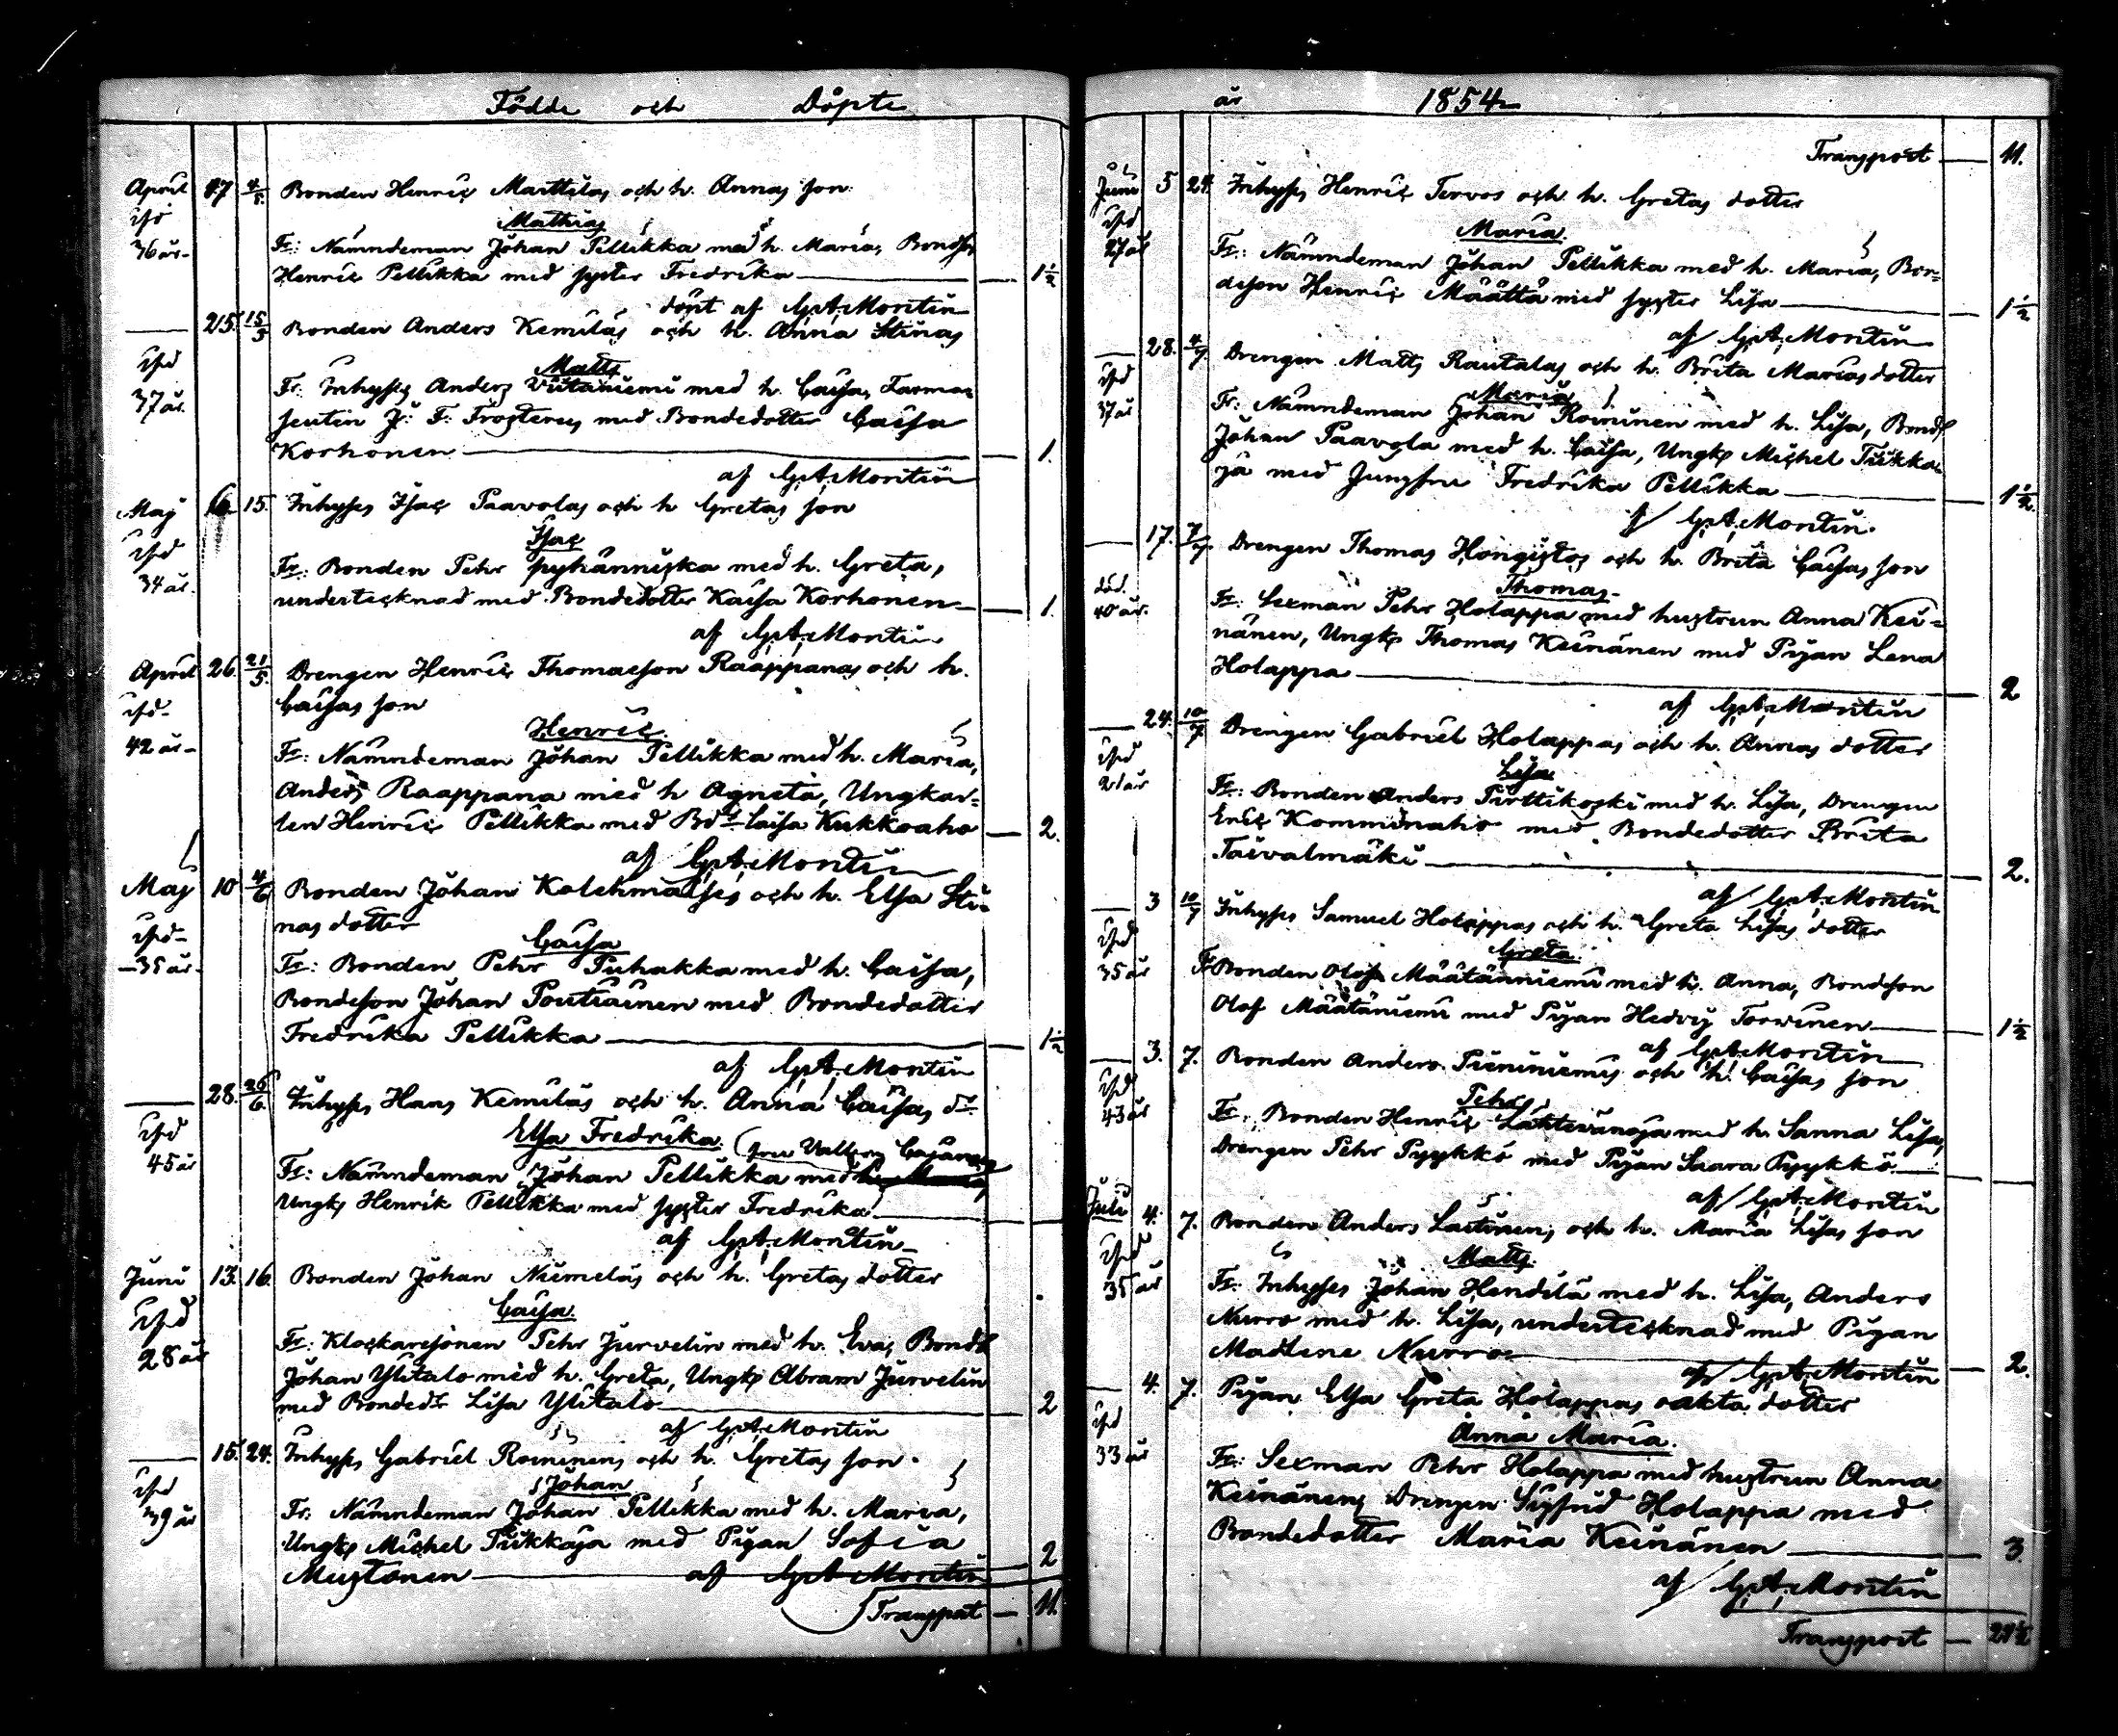 Födde och Döpte
April 17 4/5 Bonden Henric Marttilas och h. Annas son
Mathias
36 år Fr: Nämndeman Johan Pellikka med h. Maria, Bondes.
Henric Pellikka med syster Fredrika — 1½
döpt af G,A, Montin
25. 15/5 Bonden Anders Kemiläs och h. Anna Stinas
Matts
37 år Fr. Inhyses Anders Viitaniemi med h. Caisa, Farma-
seutin J: F: Frosterus, med Bondedotter Caisa
Korhonen — 1.
af G,A, Montin
Maj 6 15. Inhyses Isac Paavolas och h Gretas son
Isac
Fr: Bonden Pehr Pyhänniska med h. Greta,
34 år. undertecknad med Bondedotter Kaisa Korhonen — 1.
af G,A, Montin
April 26. 21/5 Drengen Henric Thomasson Raappanas och h.
Caisas son
42 år Henric
Fr: Nämndeman Johan Pellikka med h. Maria,
Anders Raappana med h Agneta, Ungkar-
len Henric Pellikka med Bdr Caisa Kukkoaho — 2.
af G,A, Montin
Maj 10 4/6 Bonden Johan Kolehmaises och h. Elsa Sti-
nas dotter
Caisa
35 år Fr: Bonden Pehr Puhakka med h. Caisa,
Bondeson Johan Poutiainen med Bondedotter
Fredrika Pellikka — 1½
af G,A, Montin
28. 26/6. Inhyses Hans Kemiläs och h. Anna Caisas dr
Elsa Fredrika
45 år Fr: Nämndeman Johan Pellikka med (fru Valborg Cajanus
Ungk Henrik Pellikka med syster Fredrika
af G,A, Montin
Juni 13. 16. Bonden Johan Niemeläs och h. Gretas dotter
Caisa.
28 år Fr: Klockaresonen Pehr Jurvelin med h. Eva, Bond.
Johan Ylitalo med h. Greta, Ungk Abram Jurvelin
med Bondedr Lisa Ylitalo — 2
af G,A, Montin
15. 24. Inhyses Gabriel Rominens och h. Gretas son.
Johan
39 år Fr: Nämndeman Johan Pellikka med h. Maria,
Ungk Michel Tiikkaja med Pigan Sofia
Mustonen — af G A Montin 2
Transport — 11.
år 1854
Transport — 11.
Juni 5 24. Inhyses Henric Tervos och h. Gretas dotter
Maria
27 år Fr: Nämndeman Johan Pellikka med h. Maria, Bon-
deson Henric Määttä med syster Lisa — 1½
af G,A, Montin
28. 4/7. Drengen Matts Rautalas och h. Brita Marias dotter
Maria
37 år Fr: Nämndeman Johan Rominen med h. Lisa, Bond.
Johan Paavola med h. Caisa, Ungk Michel Tiikka-
ja med Jungfru Fredrika Pellikka — 1½.
af G,A, Montin.
17. 7/7. Drengen Thomas Hongistos och h. Brita Caisas son
Thomas
40 år. Fr: Sexman Pehr Holappa med hustrun Anna Kei-
nänen, Ungk Thomas Keinänen med Pigan Lena
Holappa — 2
af G,A, Montin
24. 10/7 Drengen Gabriel Holappas och h. Annas dotter
Lisa
21 år Fr: Bonden Anders Pirttikoski med h. Lisa, Drengen
Eric Komminaho med Bondedotter Brita
Taivalmäki — 2.
af G,A, Montin
3 10/7 Inhyses Samuel Holappas och h. Greta Lisas dotter
Greta
35 år Fr Bonden Olof Määtänniemi med h. Anna, Bondeson
Olof Määtäniemi med Pigan Hedvig Torvinen — 1½
af G,A, Montin
3. 7. Bonden Anders Pieniniemis och h. Caisas son
Pehr
43 år Fr: Bonden Henric Lähtevänoja med h. Sanna Lisa,
Drengen Pehr Pyykkö med Pigan Saara Pyykkö —
af G,A, Montin
Juli 4. 7. Bonden Anders Laitinens och h. Maria Lisas son
Matts
35 år Fr: Inhyses Johan Hendilä med h. Lisa, Anders
Nurro med h. Lisa, undertecknad med Pigan
Madlene Nurro — 2.
af G,A, Montin
4. 7. Pigan Elsa Greta Holappas oäkta dotter
Anna Maria.
33 år Fr: Sexman Pehr Holappa med hustrun Anna
Keinänen, Drengen Sigfrid Holappa med
Bondedotter Maria Keinänen — 3.
af G,A, Montin
Transport — 28½